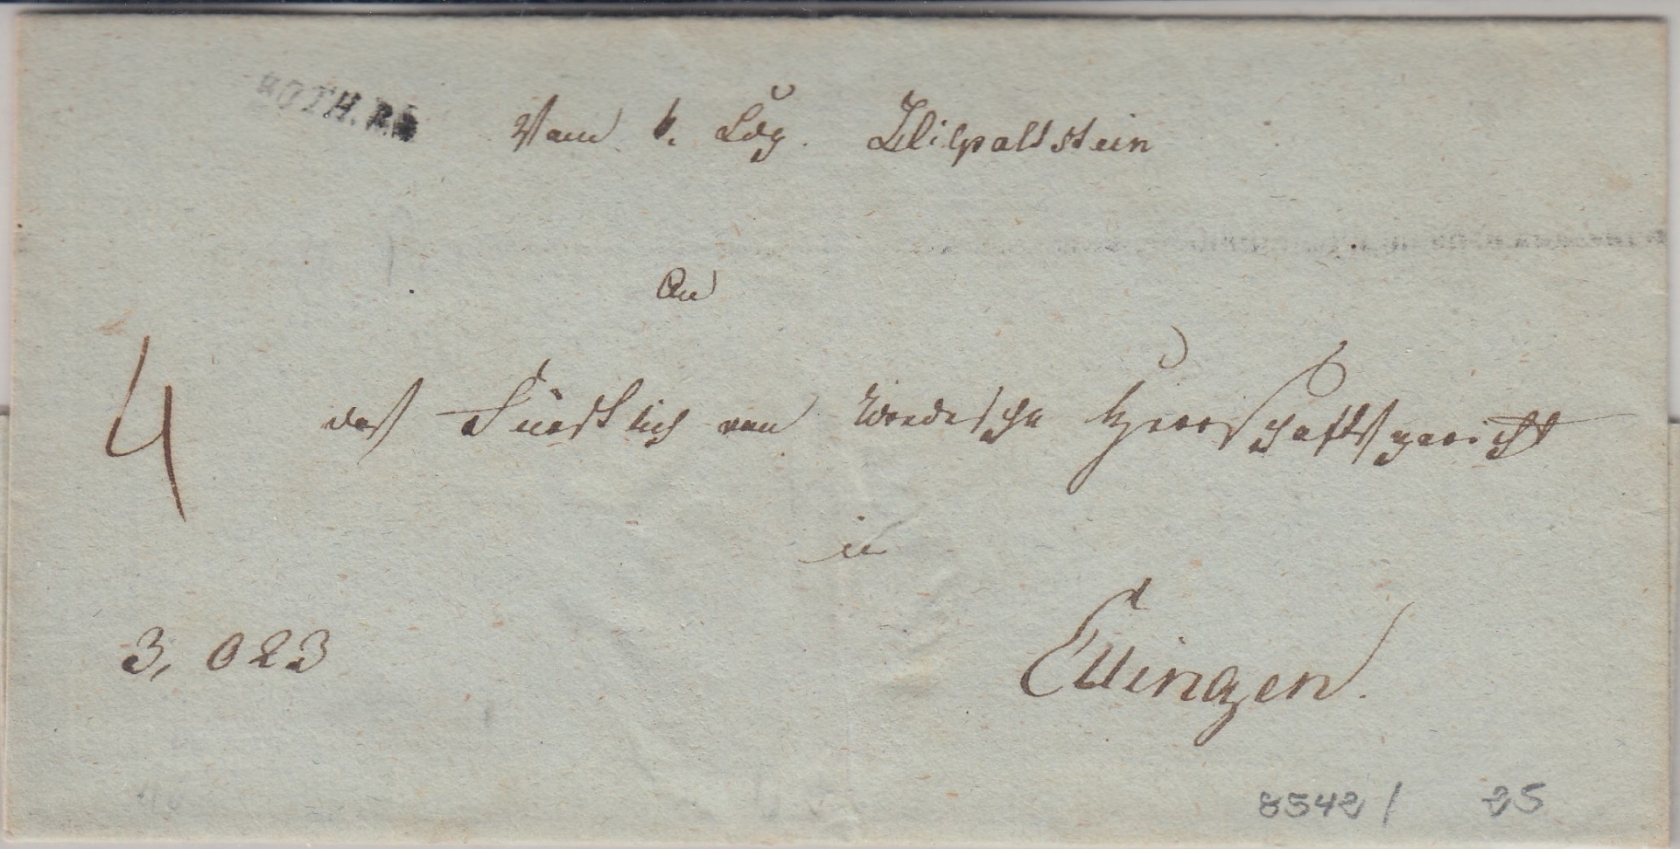 ROTH. R.S
Vom k. Ldg. Hilpoltstein
An
das Fürstlich von Wredische Herrschaftsgericht
in
4
3,023
Ellingen.
8542/ 25